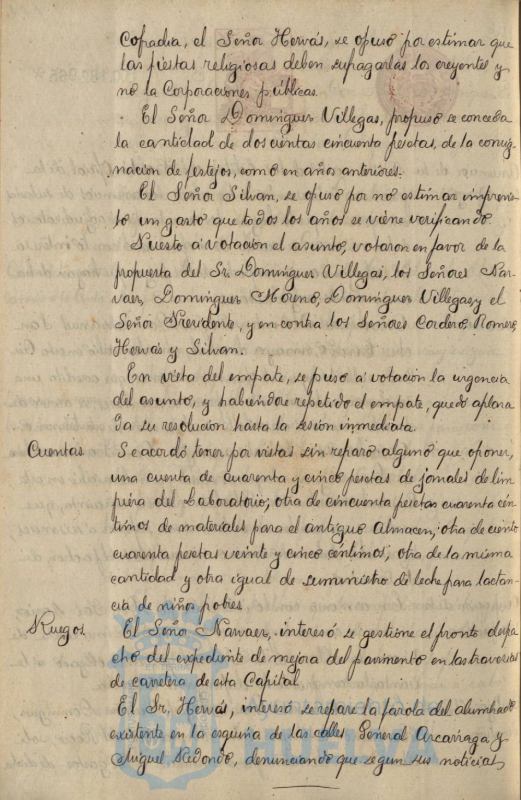 Cofradia, el Señor Hervás, se opuso por estimar que
las fiestas religiosas deben sufragarlas los creyentes y
no la Corporaciones públicas.
El Señor Dominguez Villegas, propuso se conceda
la cantidad de doscientas cincuenta pesetas, de la consig
nacion de festejos, como en años anteriores.
El Señor Silvan, se opuso por no estimar imprevis
to un gasto que todos los años se viene verificando
Puesto á votacion el asunto, votaron en favor de la
propuesta del Sr. Dominguez Villegas, los Señores Nar-
vaez, Dominguez Moreno, Dominguez Villegas y el
Señor Presidente, y en contra los Señores Cordero, Romero,
Hervás y Silvan.
En vista del empate, se puso á votacion la urgencia
del asunto, y habiendose repetido el empate, quedó aplaza
da su resolucion hasta la sesion inmediata.
Cuentas Se acordó tener por vistas sin reparo alguno que oponer,
una cuenta de cuarenta y cinco pesetas de jornales de lim
pieza del Laboratorio; otra de cincuenta pesetas cuarenta cén
timos de materiales para el antiguo Almacen; otra de ciento
cuarenta pesetas veinte y cinco céntimos; otra de la misma
cantidad y otra igual de suministro de leche para lactan
cia de niños pobres.
Ruegos. El Seño Narvaez, interesó se gestione el pronto despa
cho del expediente de mejora del pavimento en las travesias
de carretera de esta Capital.
El Sr. Hervás, interesó se repare la farola del alumbrado
existente en la esquina de las calles General Azcarraga y
Miguel Redondo, denunciando que segun sus noticias
HUELVA